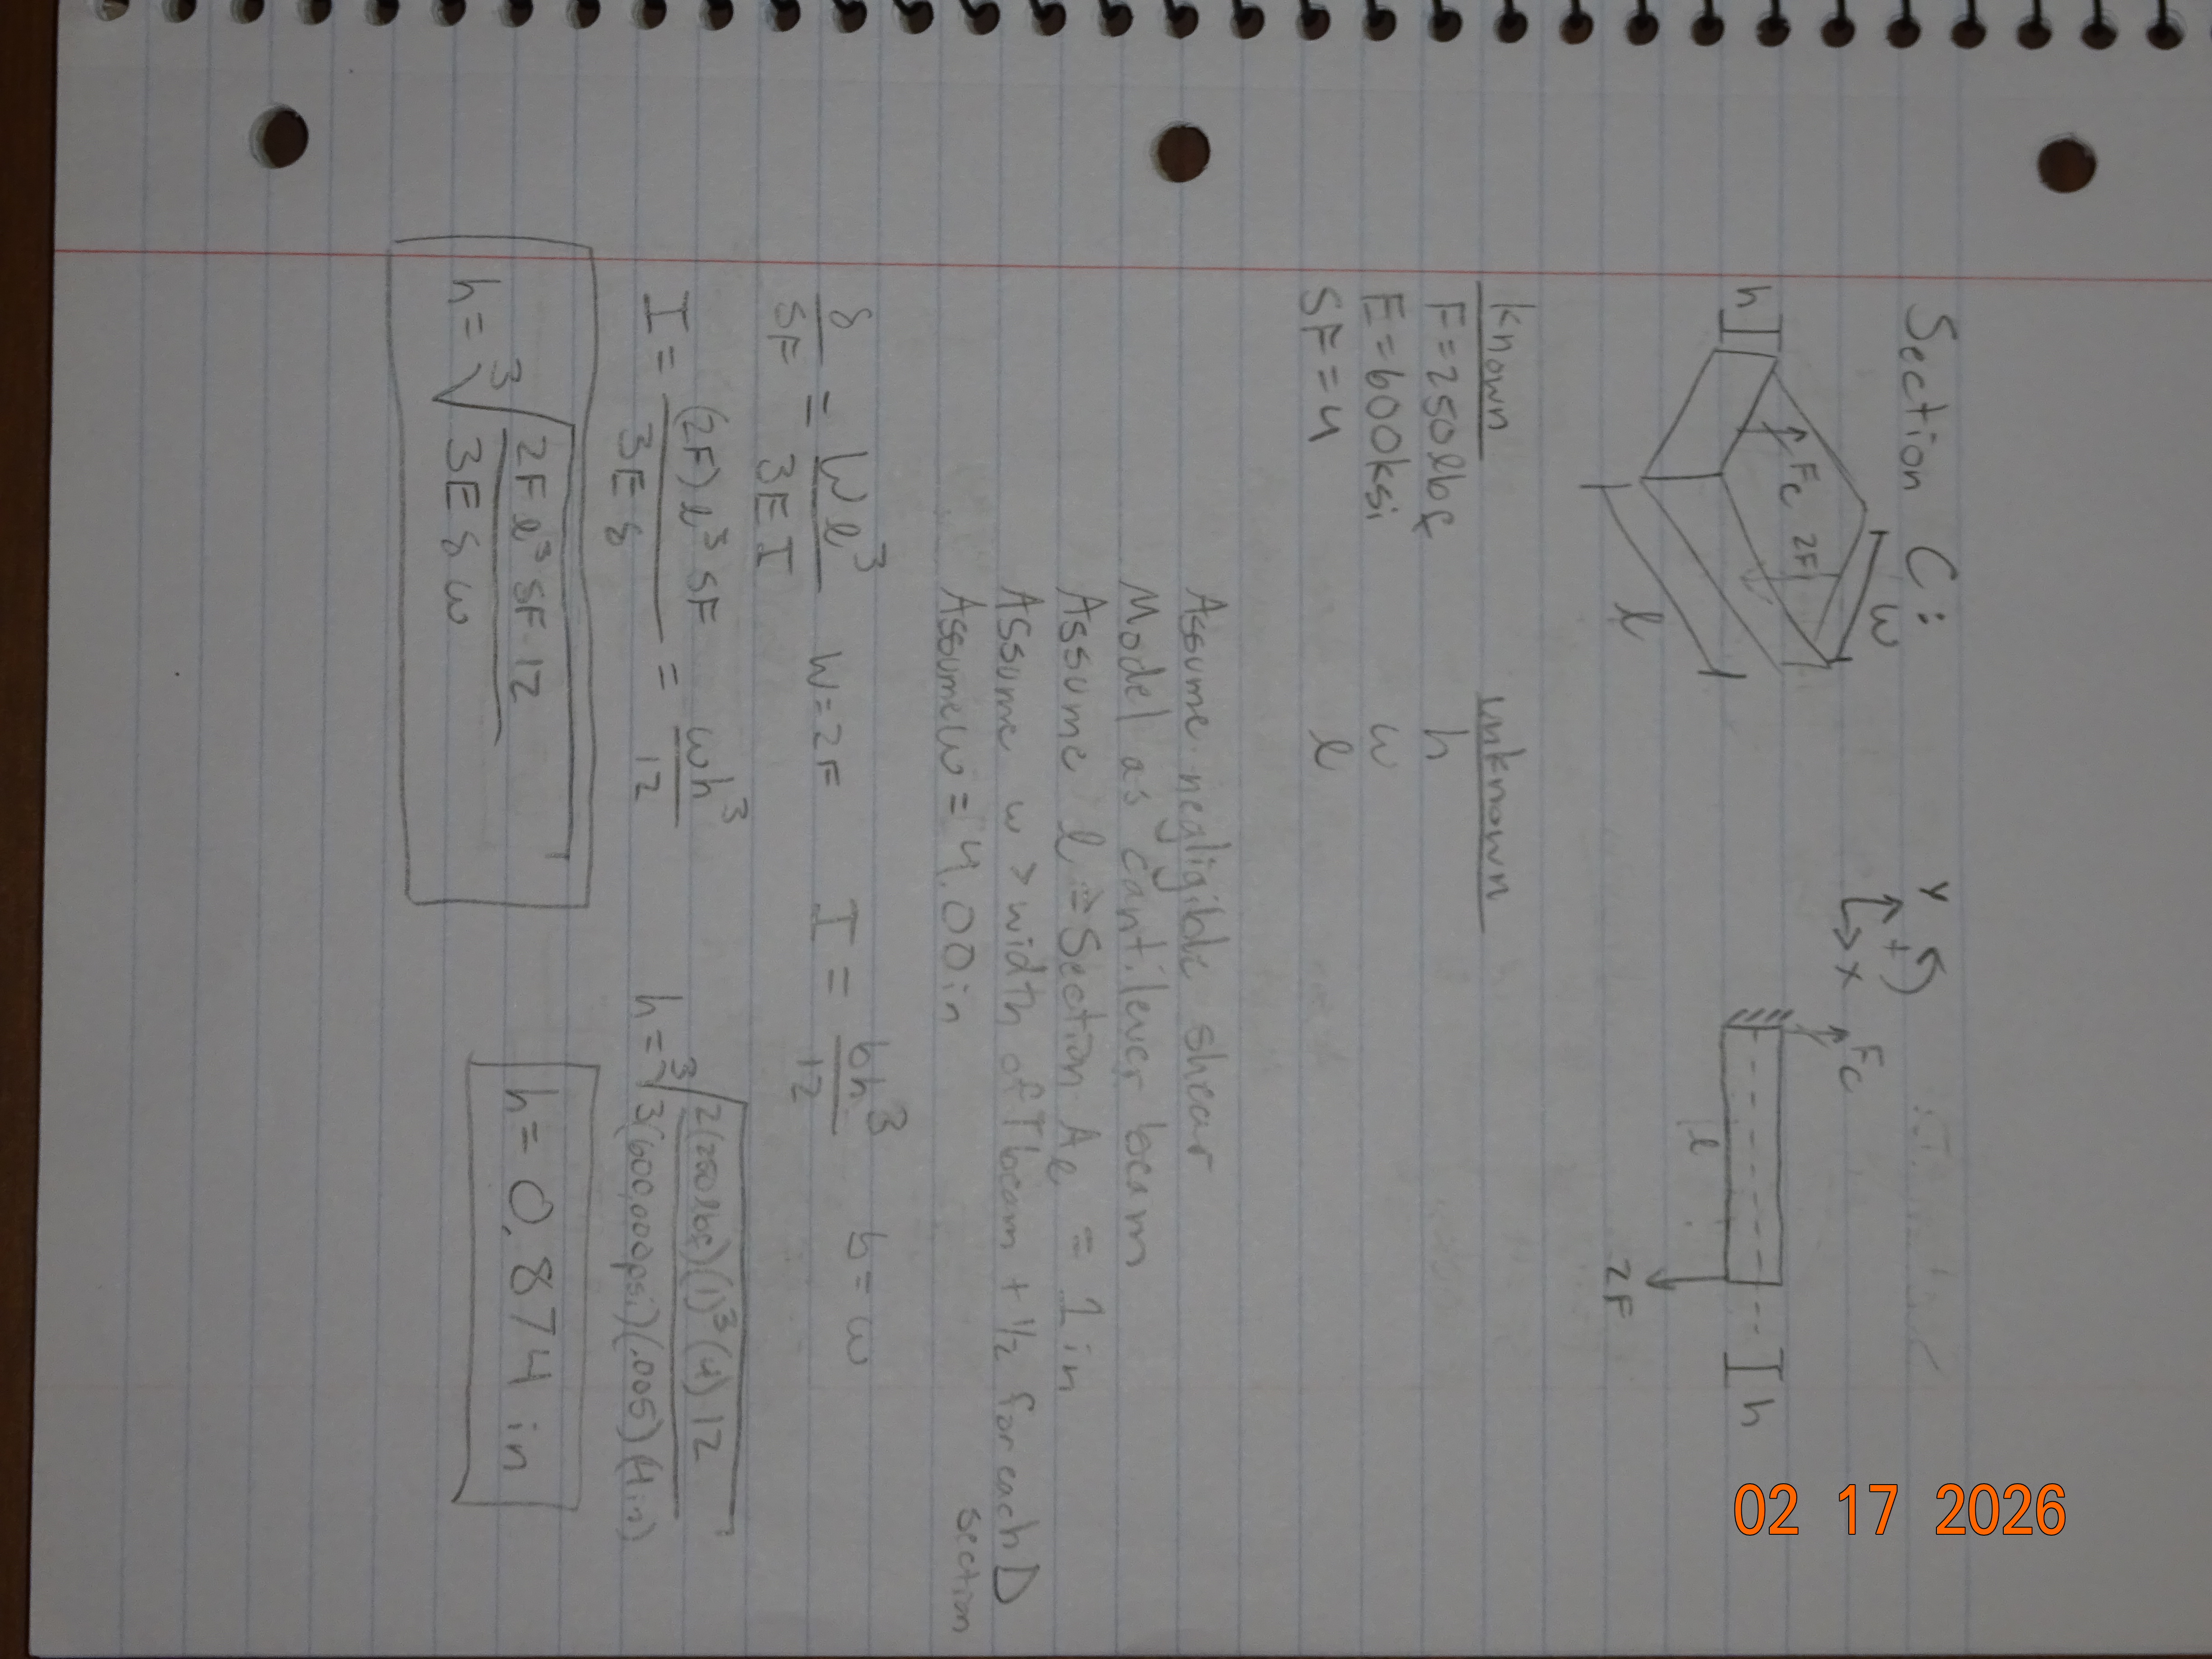 Section C:
w
h
Fc
2F
l
Y
+
x
Fc
l
2F
h
Known
unknown
F=250lbf
h
E=600ksi
w
SF=4
l
Assume negligible shear
Model as cantilever beam
Assume l = Section Aℓ = 1 in
Assume w > width of T beam + 1/2 for each D
section
Assume w = 4.00in
δ/SF = Wl³/3EI W=2F I = bh³/12 b=w
I = (2F)l³SF/3Eδ = wh³/12
h = ∛(2(250lbf)(1)³(4)12/3(600,000psi)(.005)(4in))
h = ∛(2Fl³SF·12/3Eδw)
h = 0.874 in
02 17 2026